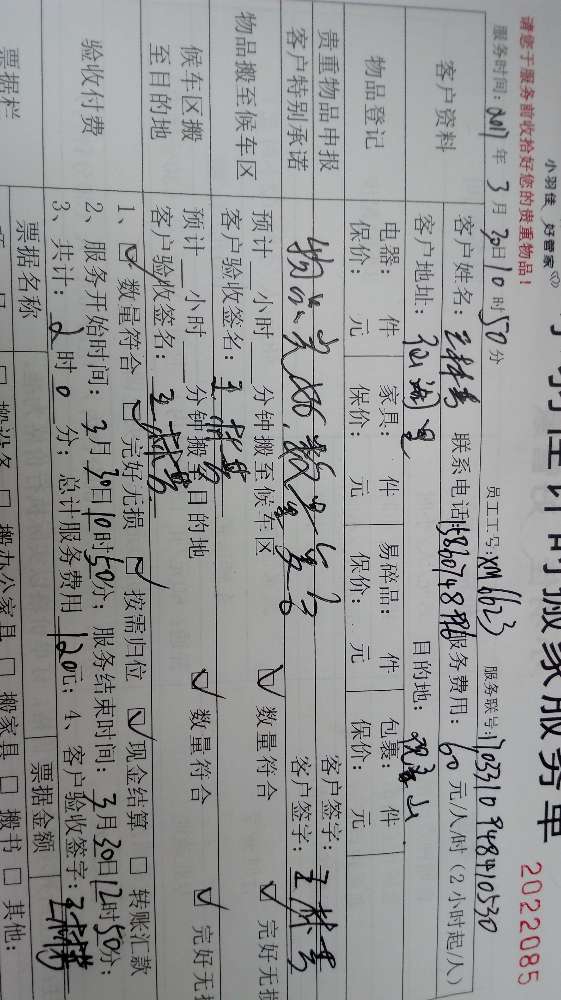 小羽佳 好管家
小羽佳计时搬家服务单
2022085
请您于服务前收拾好您的贵重物品！
服务时间：2017年3月30日10时50分 员工工号：XM6623 服务联号：170331094840530
客户资料
客户姓名： 联系电话： 服务费用：60元/人/时（2小时起/人）
客户地址： 目的地：观音山
物品登记
电器： 件 家具： 件 易碎品： 件 包裹： 件
保价： 元 保价： 元 保价： 元 保价： 元
贵重物品申报
客户特别承诺
物品完好，数量 客户签字：
客户签字：
物品搬至候车区
预计 小时 分钟搬至候车区 ☑ 数量符合 ☑ 完好无损
客户验收签名：
候车区搬
至目的地
预计 小时 分钟搬至目的地 ☑ 数量符合 ☑ 完好无损
客户验收签名：
验收付费
1、☑ 数量符合 ☑ 完好无损 ☑ 按需归位 ☑ 现金结算 □ 转账汇款
2、服务开始时间：3月30日10时50分；服务结束时间：3月30日12时50分；
3、共计：2时0分；总计服务费用120元；4、客户验收签字：
票据栏
票据名称 票据金额
□ 搬设备 □ 搬办公家具 □ 搬家具 □ 搬书 □ 其他：